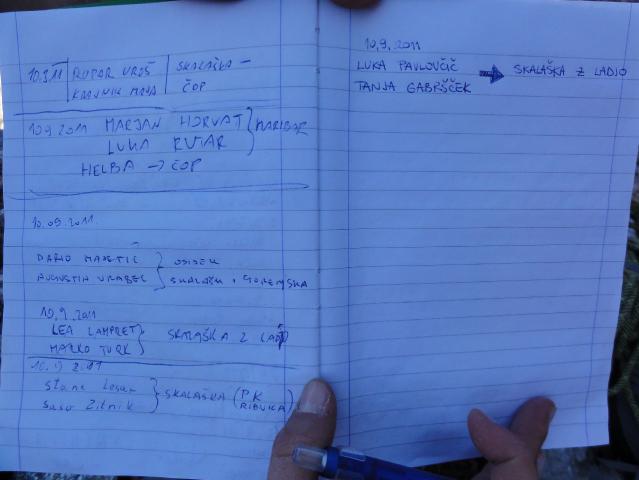 10.9.11 RUPAR UROŠ SKALAŠKA –
KRAJNIK MAJA ČOP
10.9.2011 MARJAN HORVAT } MARIBOR
LUKA RUTAR
HELBA → ČOP
10.09.2011
DARIO
AUGUSTIN VRABEC } SKALAŠKA +
10.9.2011
LEA LAMPRET } SKALAŠKA Z LADJO
MARKO TURK
10.9.2011
Stane } SKALAŠKA (P.K.
Sašo Žitnik RIBNICA)
10.9.2011
LUKA PAVLOVČIČ → SKALAŠKA Z LADJO
TANJA GABRŠČEK